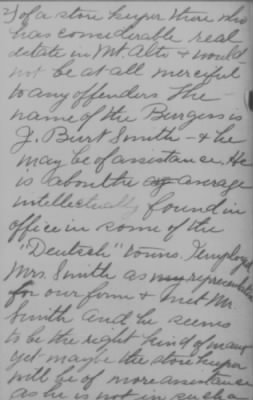 2) of a store keeper there who
has considerable real
estate in Mt. Alto & would
not be at all merciful
to any offenders. The
name of the Burgess is
J. Burt Smith - & he
may be of assistance. He
is about the average
intellectually found in
office in some of the
"Deutsch" towns. I employed
Mrs. Smith as my representative
for our form & met Mr.
Smith and he seems
to be the right kind of man
yet maybe the store keeper
will be of more assistance
as he is not in such a